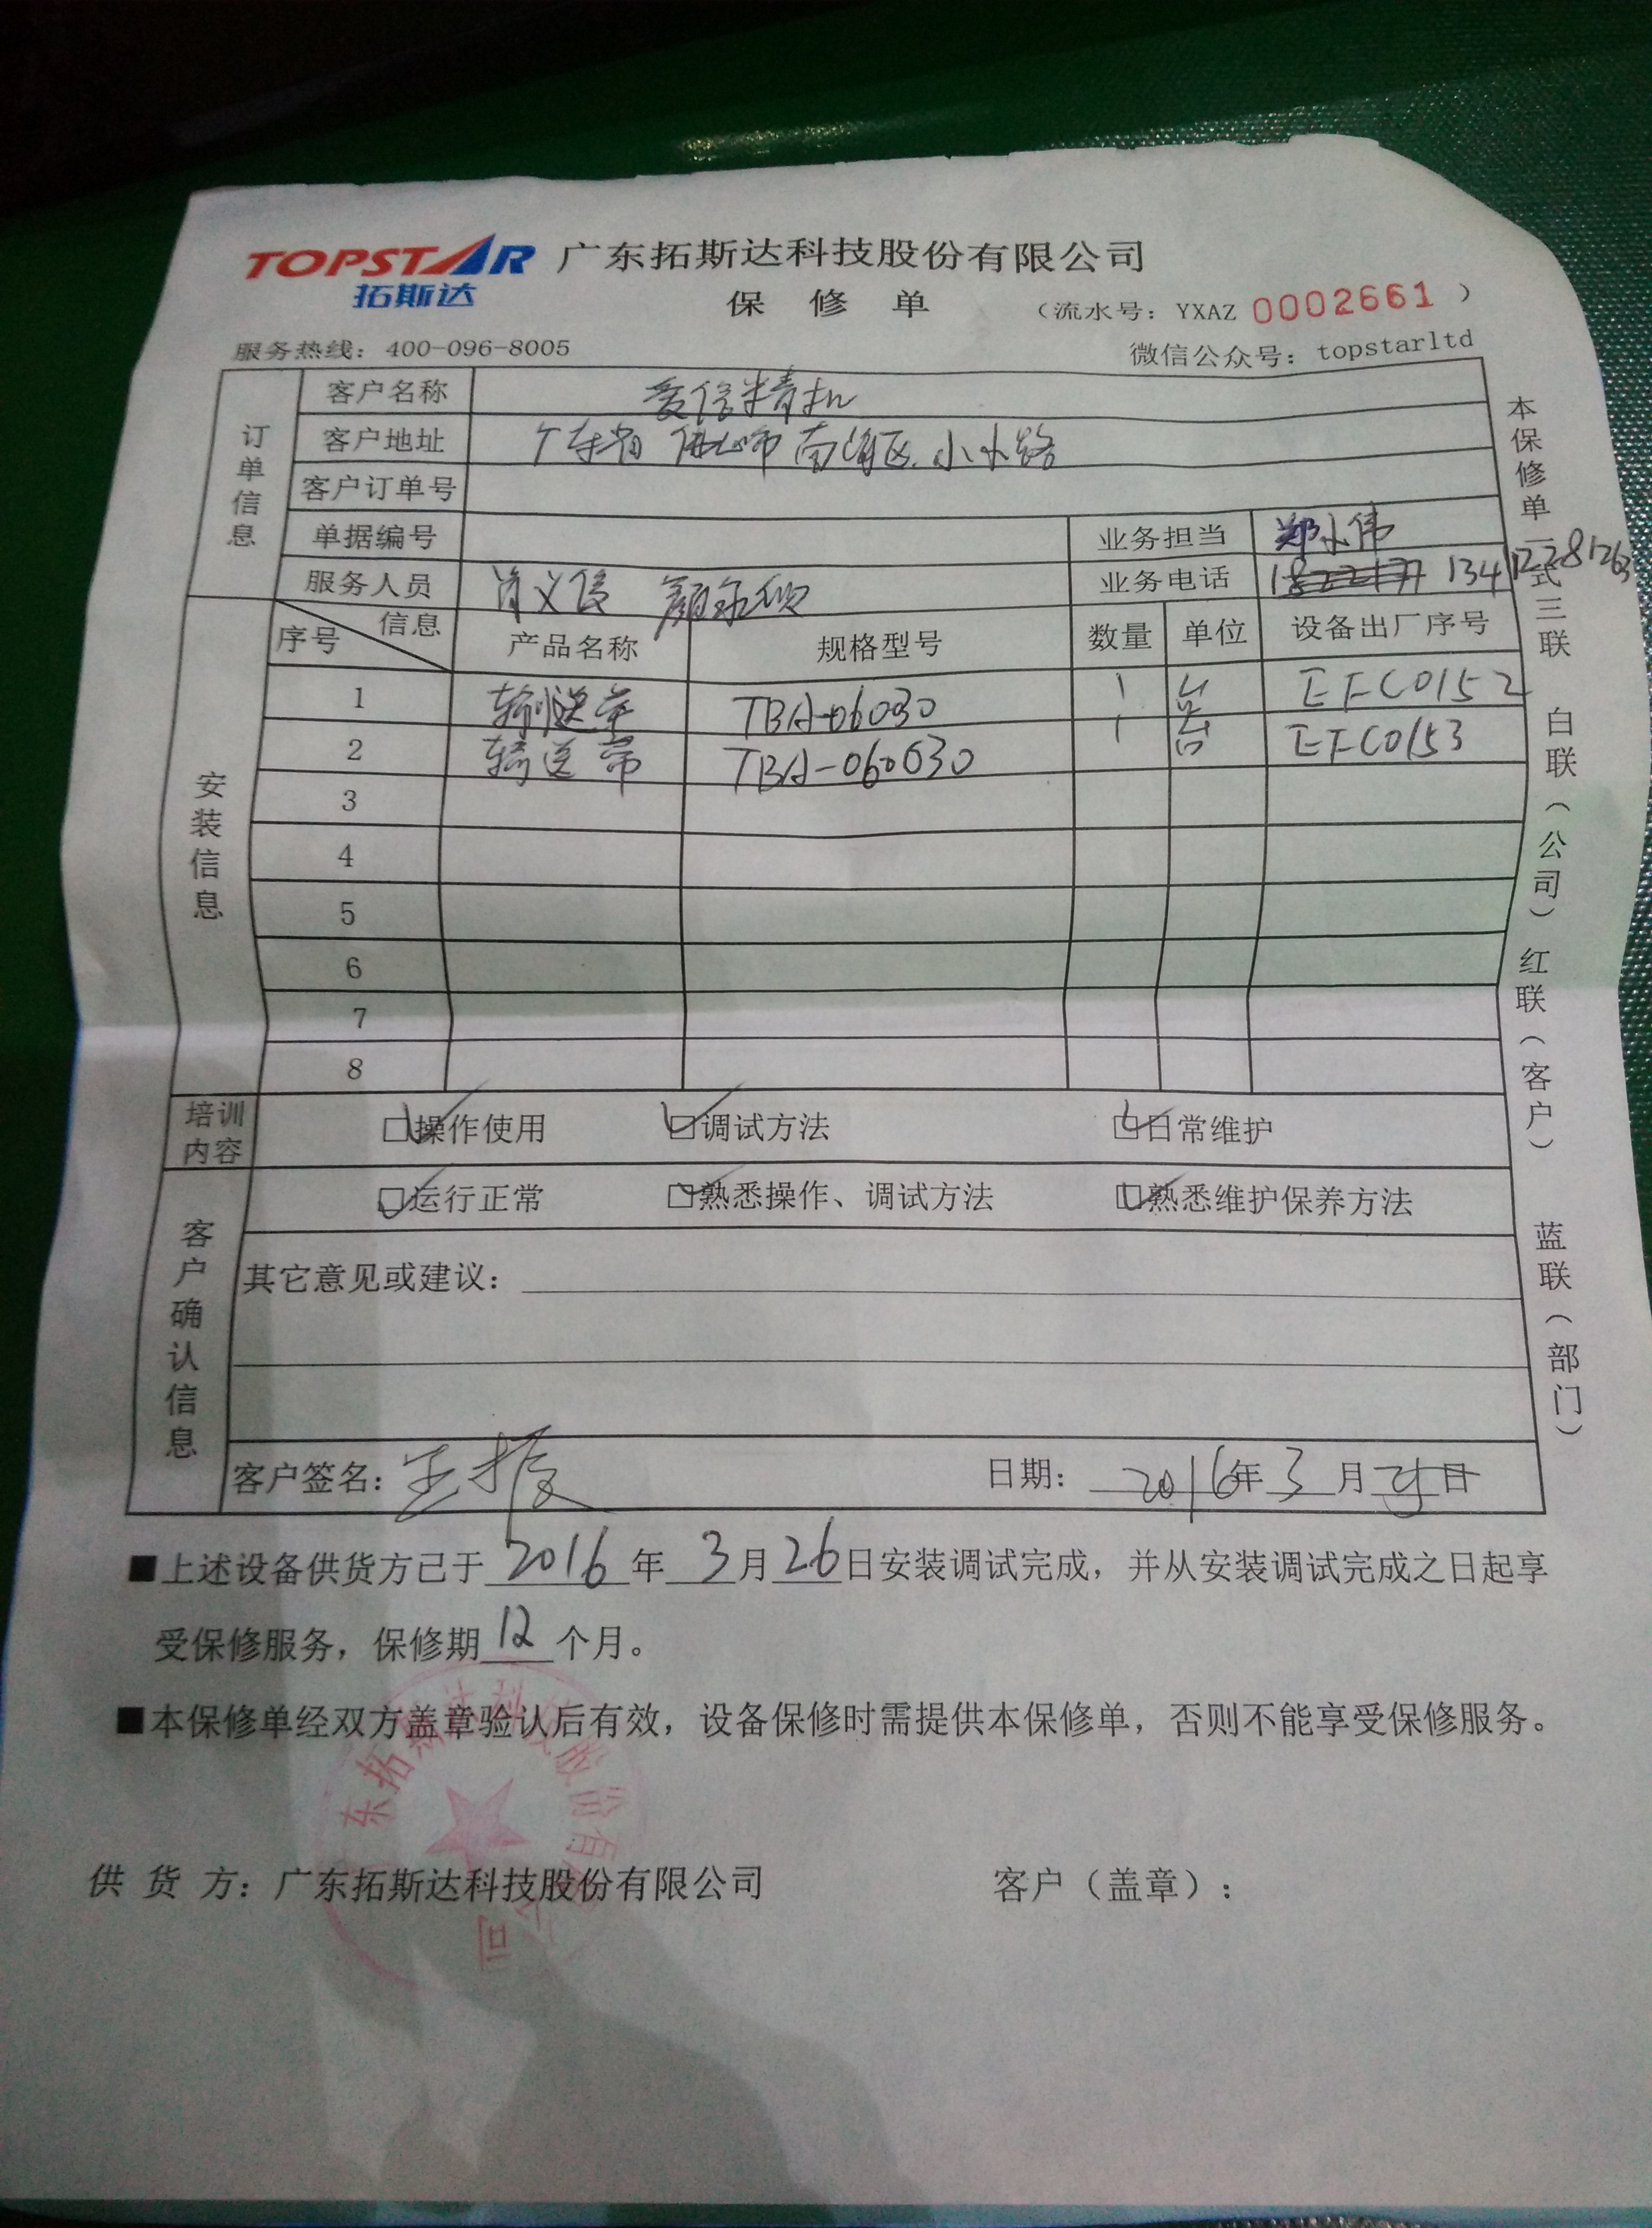 TOPSTAR 广东拓斯达科技股份有限公司
拓斯达
保 修 单
（流水号：YXAZ 0002661 ）
服务热线：400-096-8005
微信公众号：topstarltd
订单信息
客户名称 爱信精机
客户地址 广东省 佛山市 南海区 小水路
客户订单号
单据编号 业务担当 郑永伟
服务人员 业务电话 13412281263
序号 信息 产品名称 规格型号 数量 单位 设备出厂序号
安装信息
1 输送带 TBA-06030 1 台 EFC0152
2 输送带 TBA-060630 1 台 EFC0153
3
4
5
6
7
8
培训内容
□操作使用 □调试方法 □日常维护
客户确认信息
□运行正常 □熟悉操作、调试方法 □熟悉维护保养方法
其它意见或建议：
客户签名： 日期： 2016年3月 日
■上述设备供货方已于 2016 年 3月26日安装调试完成，并从安装调试完成之日起享
受保修服务，保修期 12 个月。
■本保修单经双方盖章验认后有效，设备保修时需提供本保修单，否则不能享受保修服务。
供 货 方：广东拓斯达科技股份有限公司 客户（盖章）：
东拓斯达科技股份有限公司
本保修单一式三联 白联（公司） 红联（客户） 蓝联（部门）